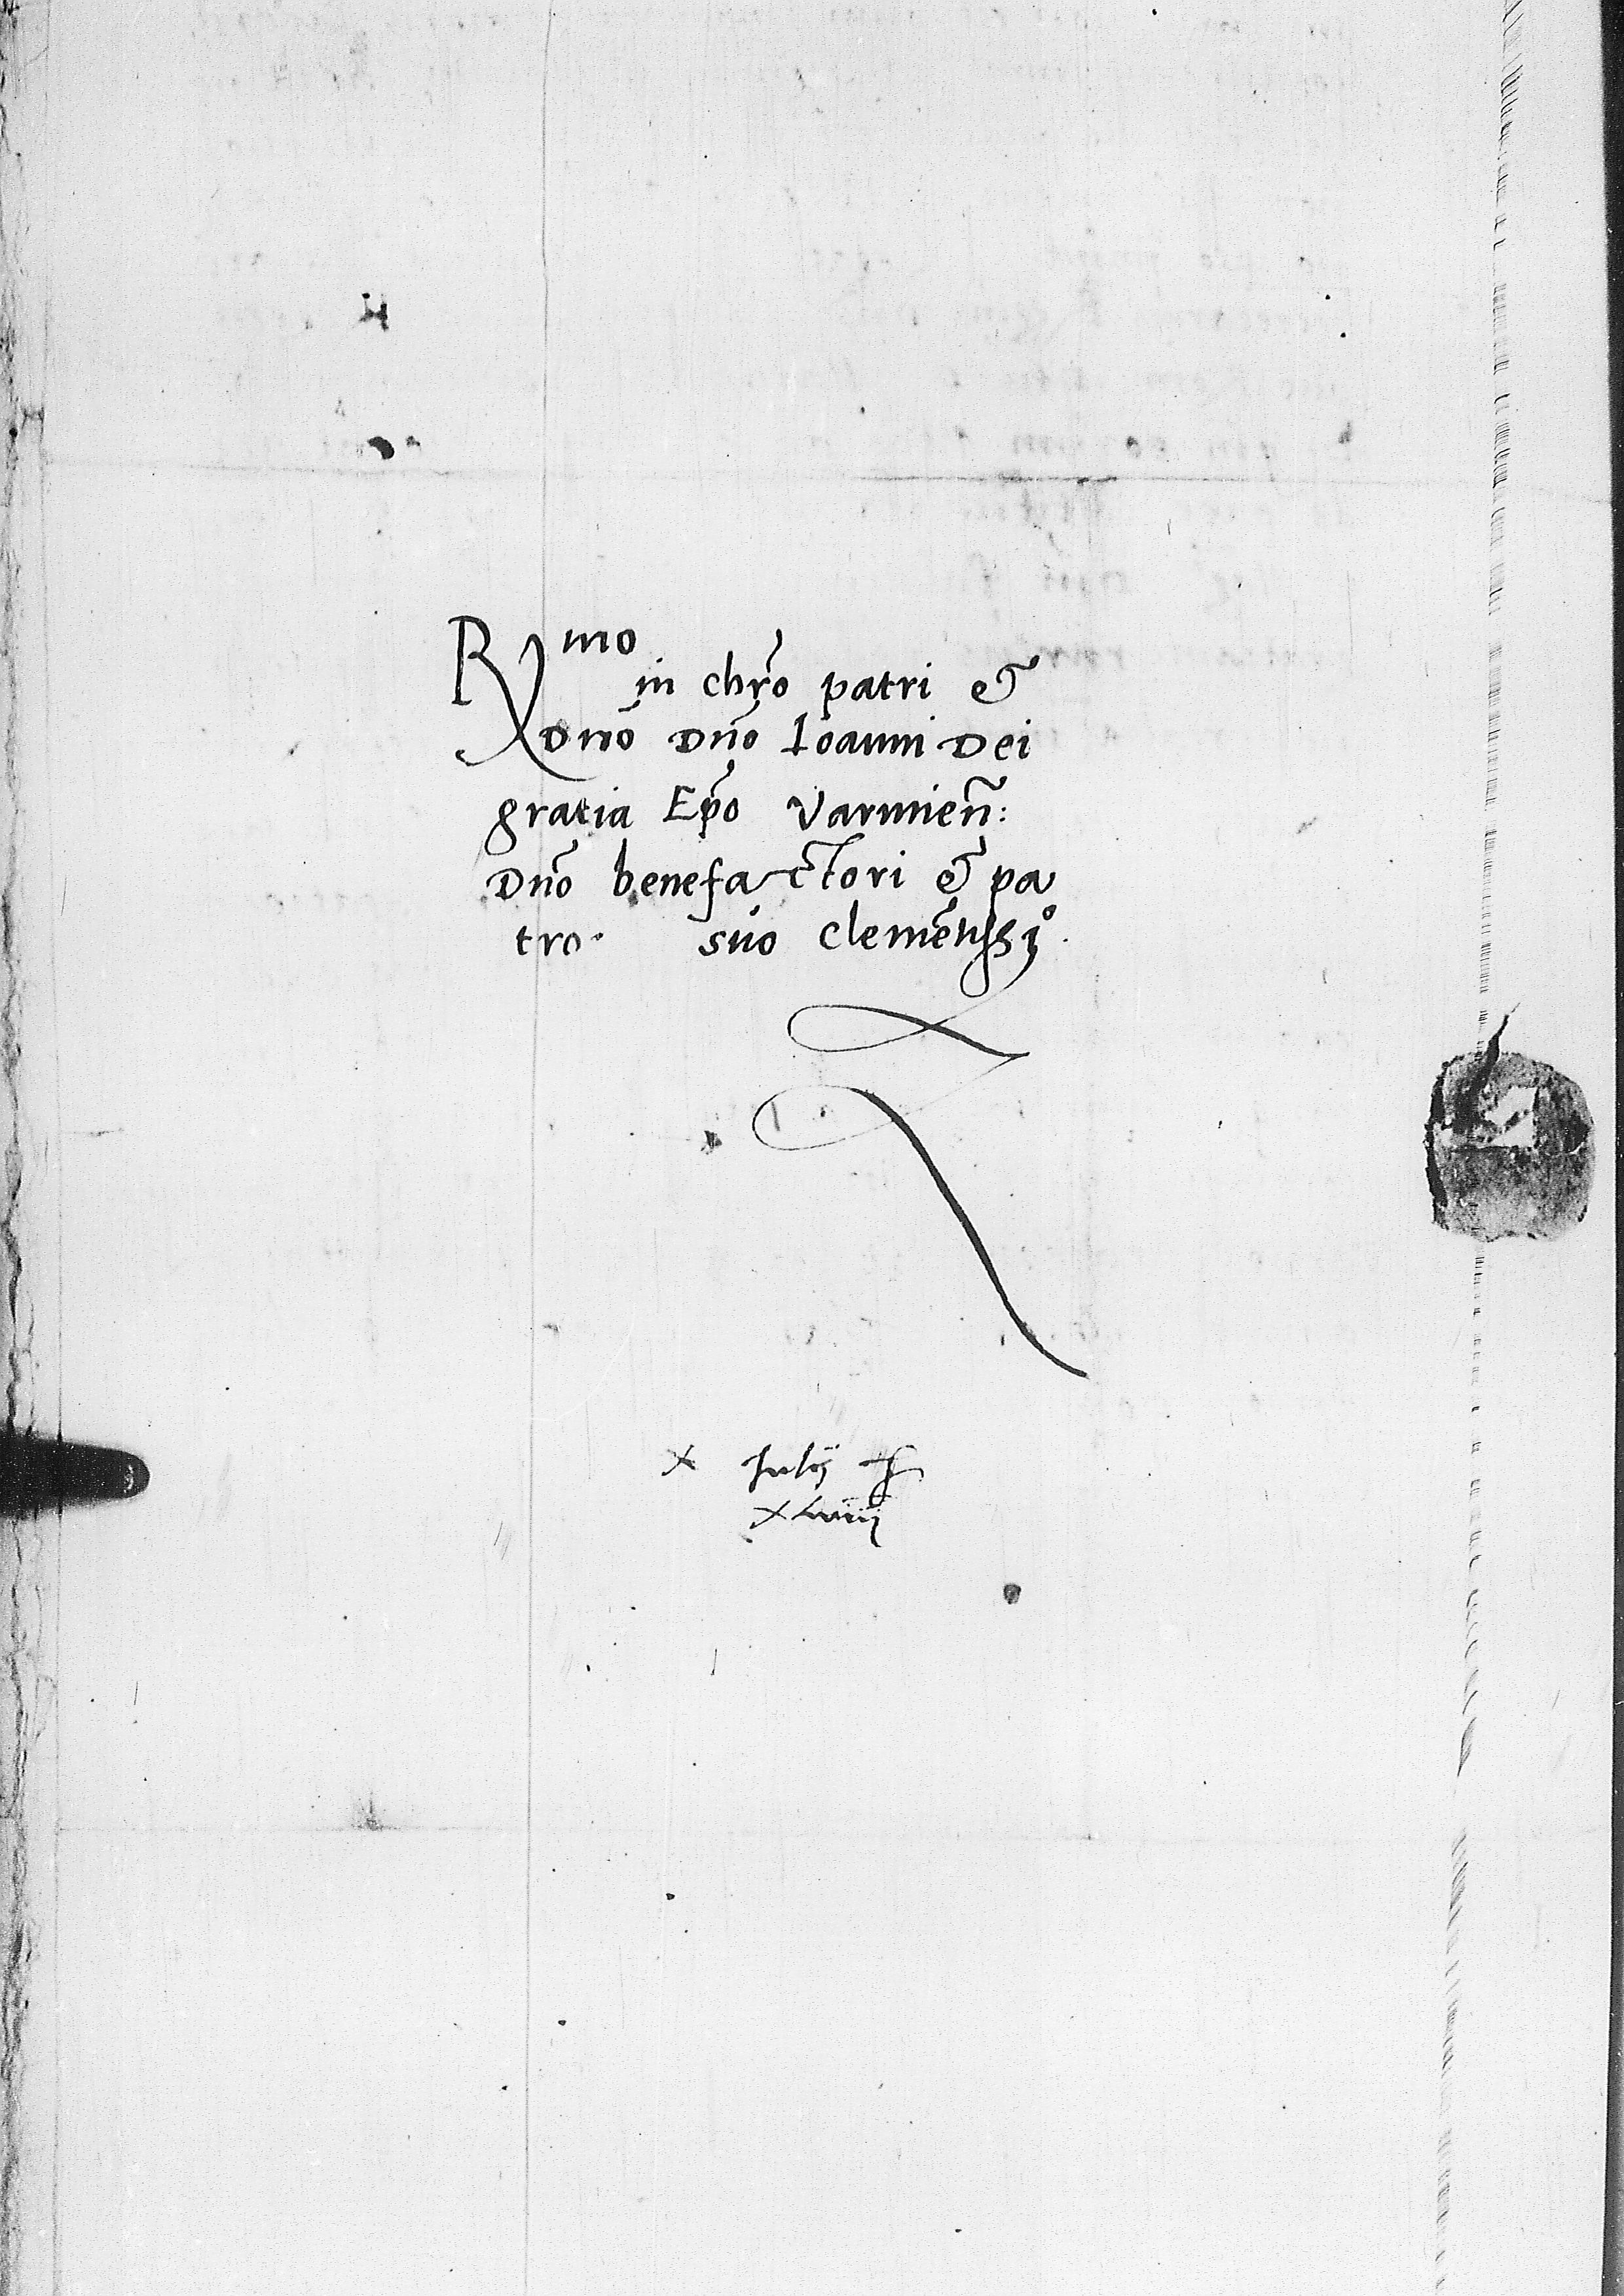 Rmo
in chro patri &
Dnō Dnō Ioanni Dei
gratia Epō Varmien̄:
Dnō benefactori & pa
tro. suo clemētissiº.
X Julij
XLviiij